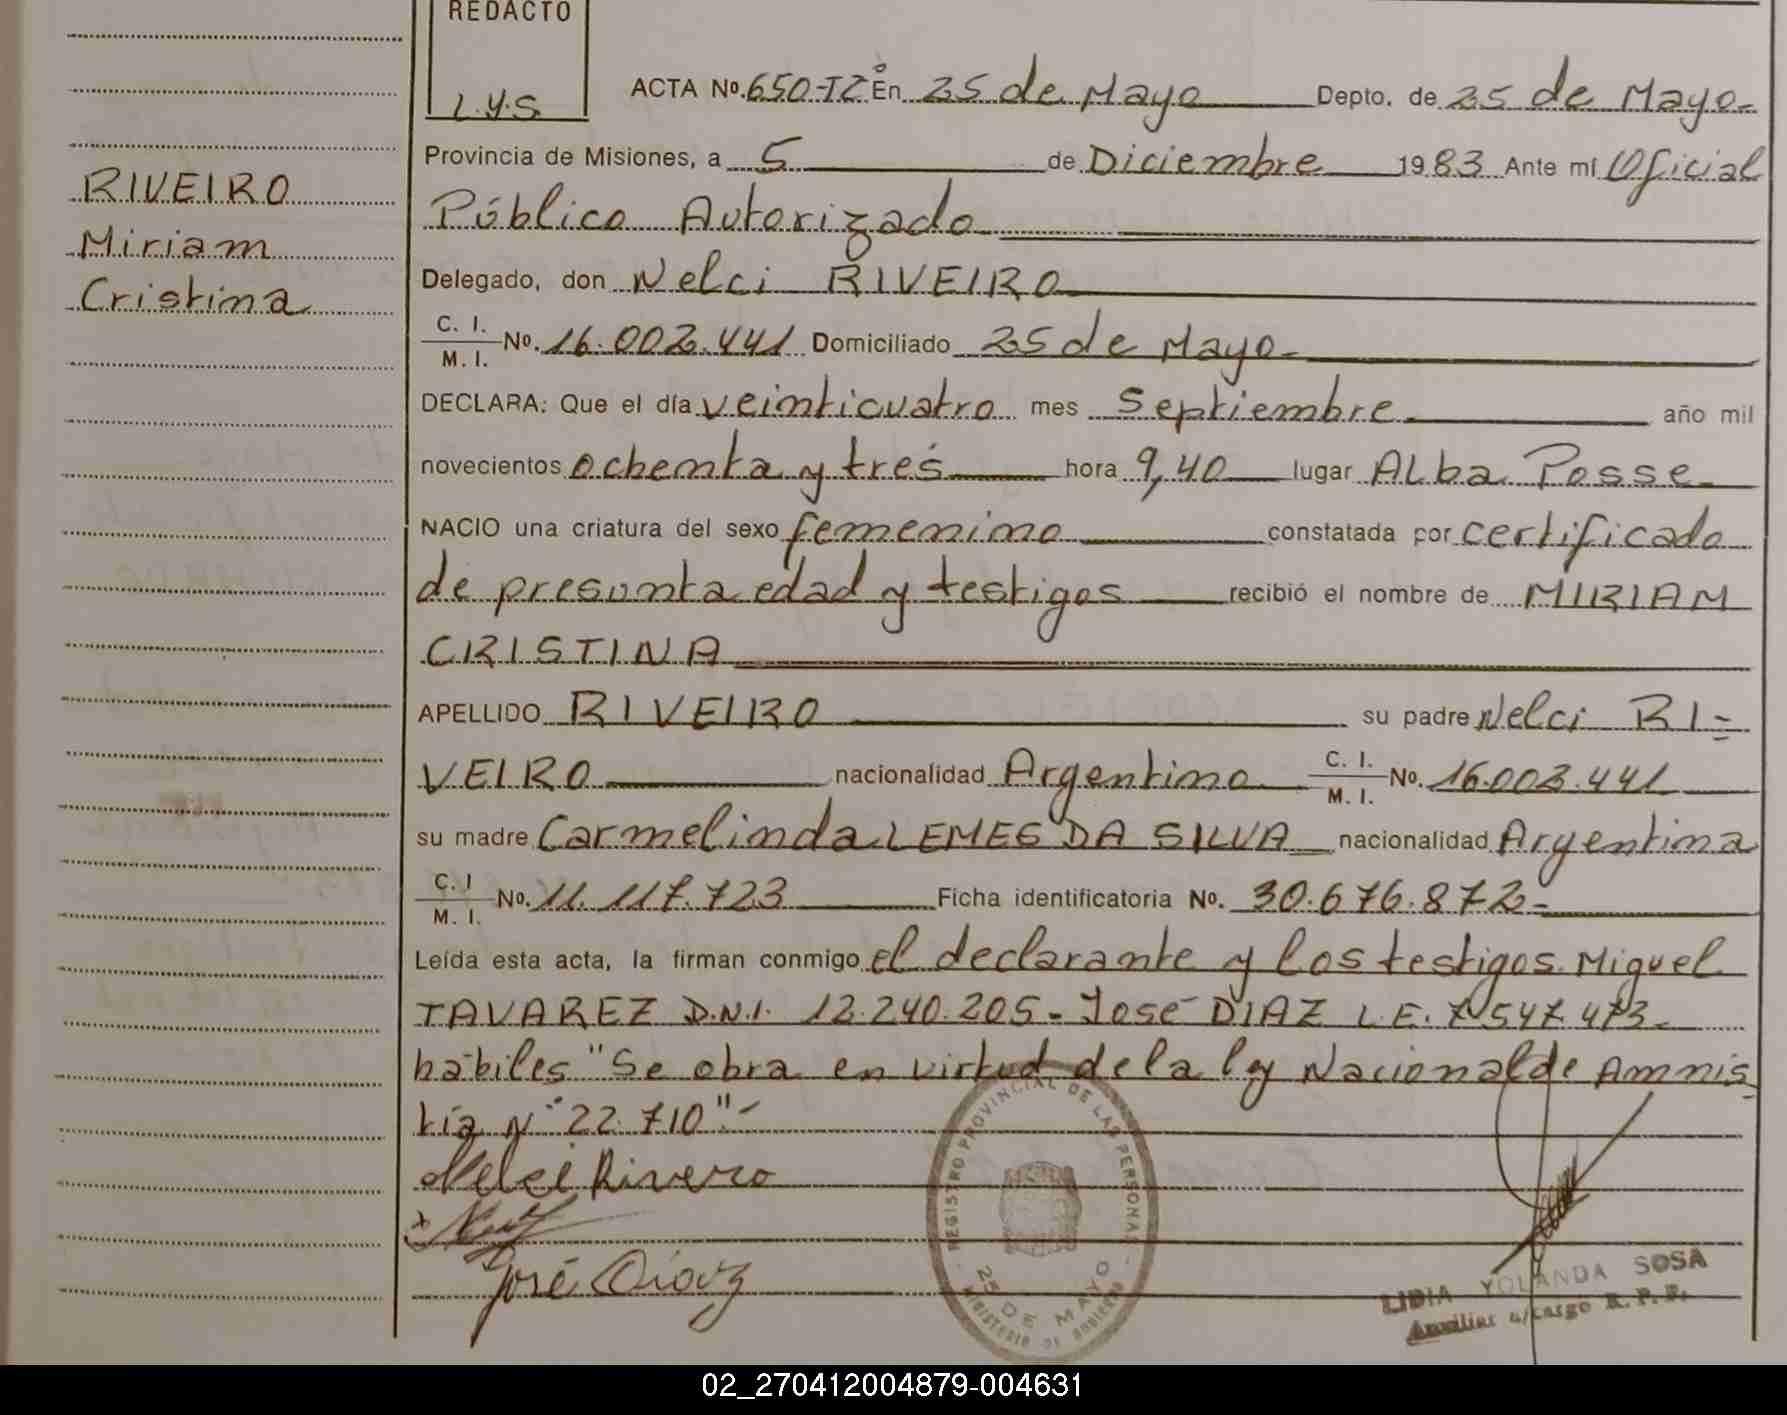 REDACTO
L.Y.S.
RIVEIRO
Miriam
Cristina
ACTA Nº 650-TZº En 25 de Mayo Depto. de 25 de Mayo-
Provincia de Misiones, a 5 de Diciembre 1983 Ante mí Oficial
Público Autorizado
Delegado, don Nelci RIVEIRO
C. I. / M. I. Nº. 16.002.441 Domiciliado 25 de Mayo-
DECLARA: Que el día veinticuatro mes septiembre año mil
novecientos ochenta y tres hora 9,40 lugar Alba Posse-
NACIO una criatura del sexo femenino constatada por certificado
de presunta edad y testigos recibió el nombre de MIRIAM
CRISTINA
APELLIDO RIVEIRO su padre Nelci RI=
VEIRO nacionalidad Argentino C. I. / M. I. Nº. 16.002.441
su madre Carmelinda LEMES DA SILVA nacionalidad Argentina
C. I / M. I. Nº. 11.117.723 Ficha identificatoria Nº. 30.676.872-
Leída esta acta, la firman conmigo el declarante y los testigos Miguel
TAVAREZ D.N.I. 12.240.205- José DIAZ L.E. 7.547.473-
hábiles "Se obra en virtud de la ley Nacional de Amnis
tía Nº 22.710"-
Nelci Rivero
José Diaz
REGISTRO PROVINCIAL DE LAS PERSONAS
25 DE MAYO
MINISTERIO DE GOBIERNO
LIDIA YOLANDA SOSA
Auxiliar a/cargo R. P. P.
02_270412004879-004631